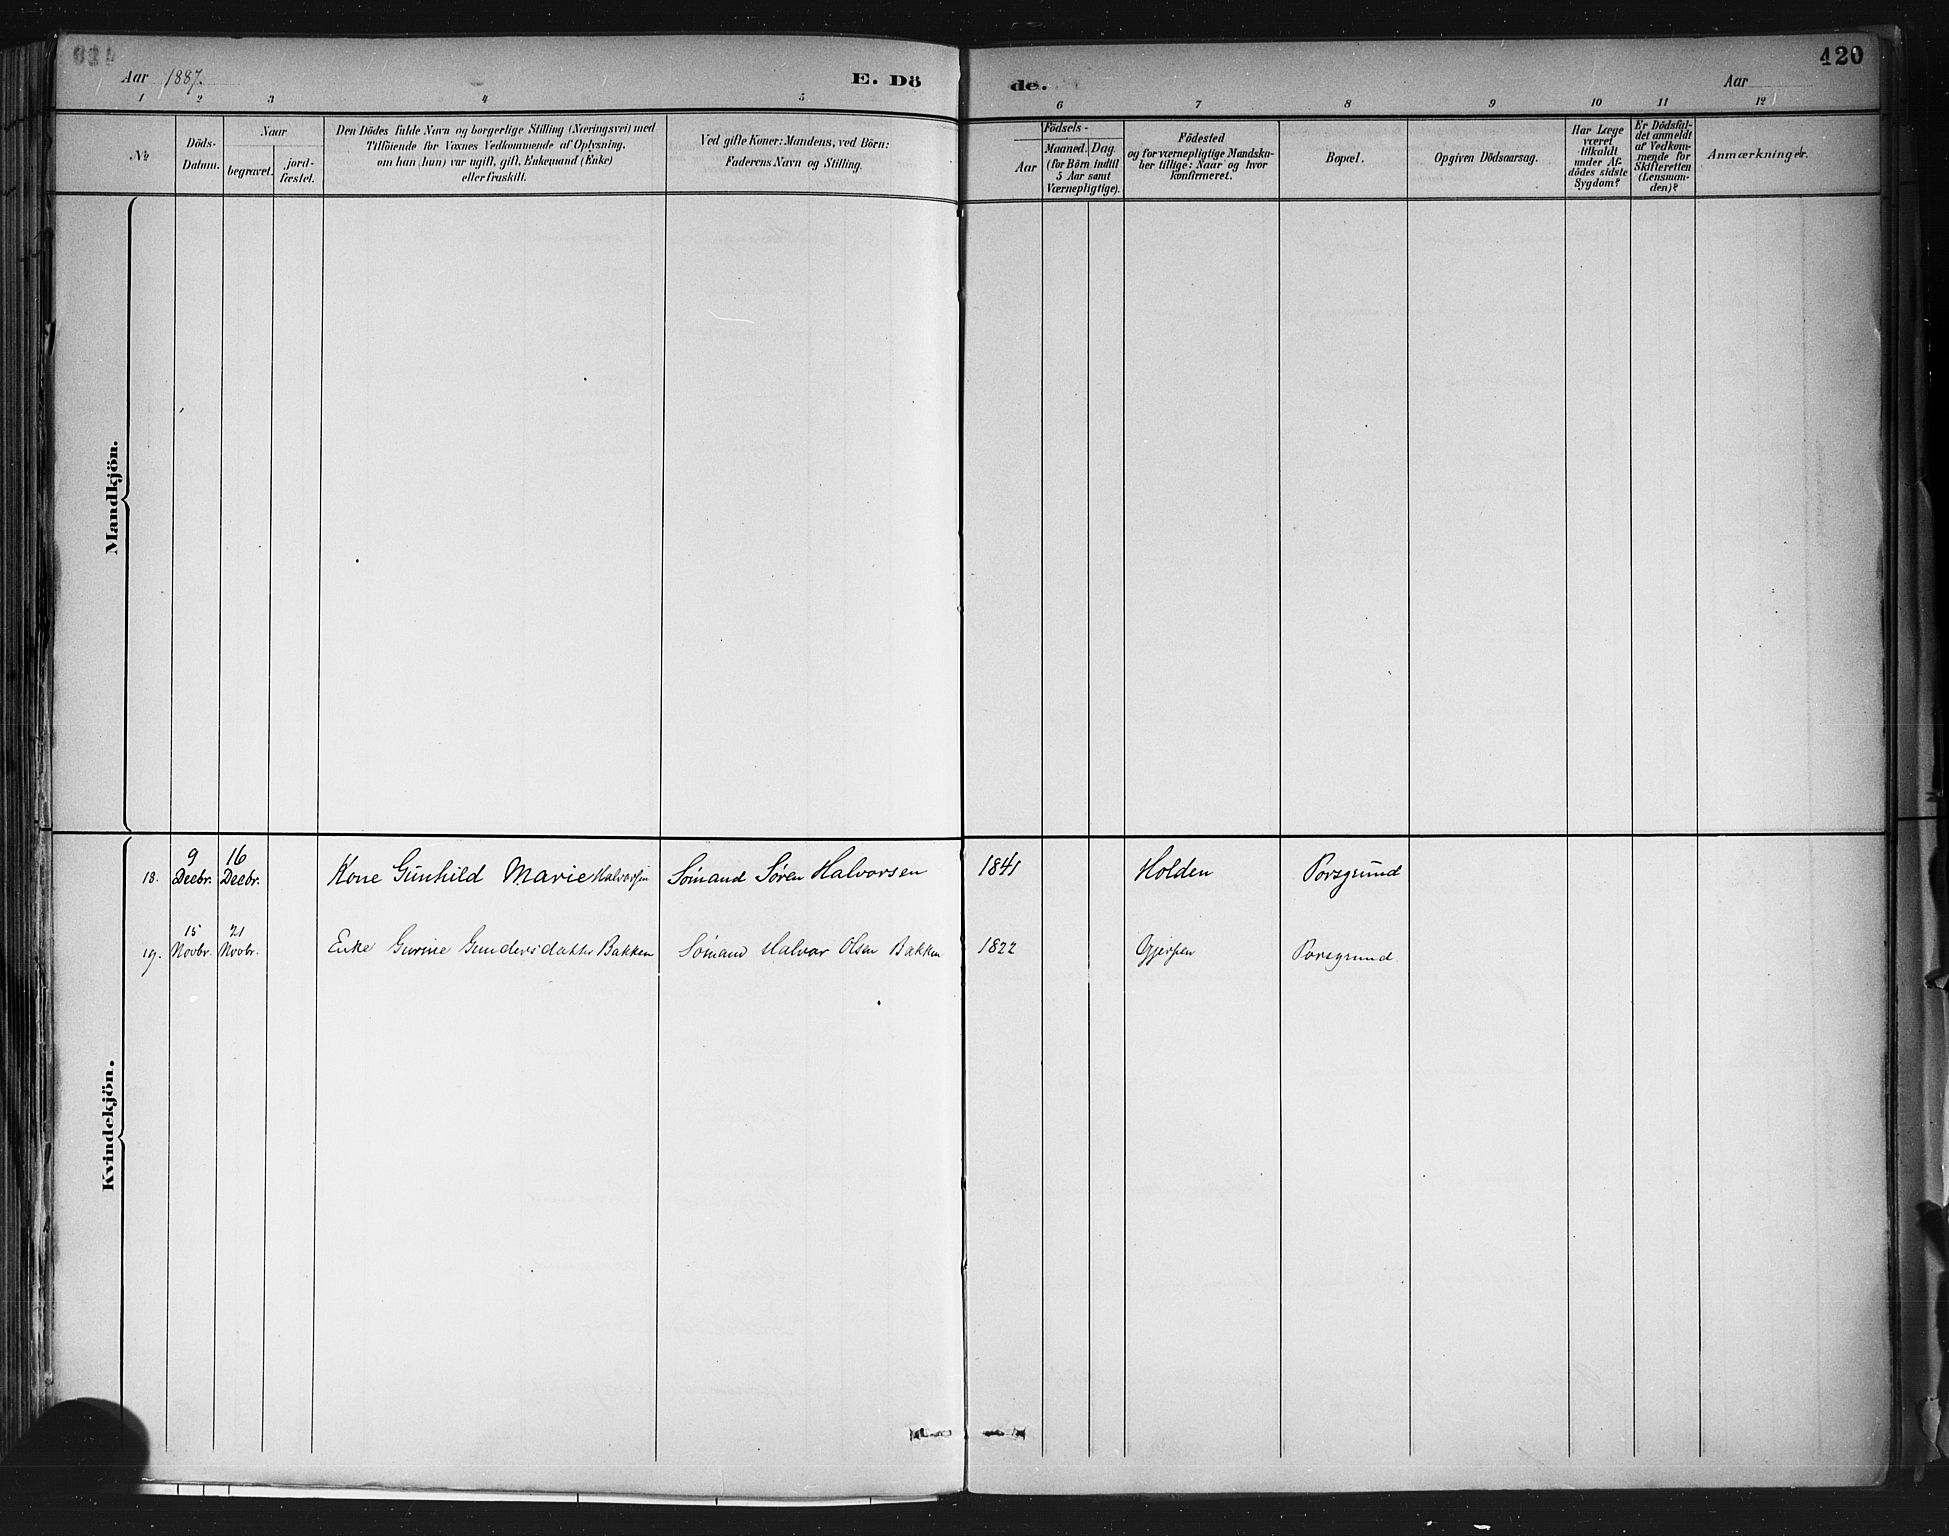 Aar 1887.
E. Dö
de.
Aar
420
1 2 3 4 5 6 7 8 9 10 11 12
No
Döds-
Datum.
Naar
begravet.
jord-
fæstet.
Den Dödes fulde Navn og borgerlige Stilling (Næringsvei) med
Tilföiende for Voxnes Vedkommende af Oplysning,
om han (hun) var ugift, gift, Enkemand (Enke)
eller fraskilt.
Ved gifte Koner: Mandens, ved Börn:
Faderens Navn og Stilling.
Födsels-
Aar
Maaned. Dag.
(for Börn indtil
5 Aar samt
Værnepligtige).
Födested
og for værnepligtige Mandska-
ber tillige: Naar og hvor
konfirmeret.
Bopæl.
Opgiven Dödsaarsag.
Har Læge
været
tilkaldt
under Af-
dödes sidste
Sygdom?
Er Dödsfal-
det anmeldt
af Vedkom-
mende for
Skifteretten
(Lensman-
den)?
Anmærkninger.
Mandkjön.
Kvindekjön.
9 16
18. Decbr. Decbr. Kone Gunhild Marie Halvorsen Sömand Søren Halvorsen 1841 Holden Porsgrund
15 21
19. Novbr. Novbr. Enke Gurine Gundersdatter Bakken Sömand Halvor Olsen Bakken 1822 Gjerpen Porsgrund